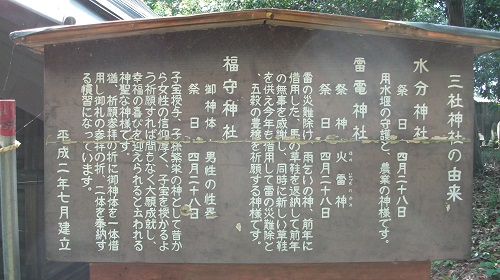 三社神社の由来
水分神社
祭日 四月二十八日
用水堰の守護と農業の神様です。
雷電神社
祭神 火雷神
祭日 四月二十八日
雷の災難除け、雨乞いの神、前年に
借用した、馬の草鞋を返納して前年
の無事を感謝し、同時に新しい草鞋
を供え今年も借用し雷の災難除と
、五穀の豊穣を祈願する神様です。
福守神社
御神体 男性の性器
祭日 四月二十八日
子宝授与、子孫繁栄の神として昔か
ら女性の信仰厚く、子宝を授かるよ
う祈願すれば間もなく大願成就し、
幸福の喜びを迎えられると云われる
神聖な神様です。
猶、祈願参拝の折に御神体を一体借
用し御礼の参拝の折、二体を奉納す
る慣習になっています。
平成二年七月建立